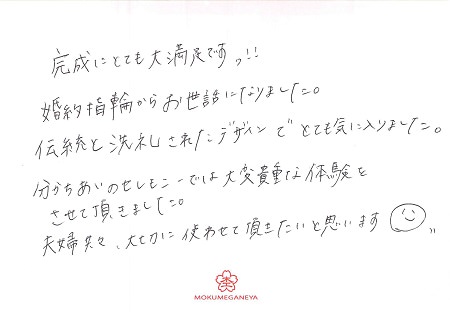 完成にとても大満足ですっ!!
婚約指輪からお世話になりました。
伝統と洗礼されたデザインでとても気に入りました。
分かちあいのセレモニーでは大変貴重な体験を
させて頂きました。
夫婦共々、大切に使わせて頂きたいと思います
MOKUMEGANEYA